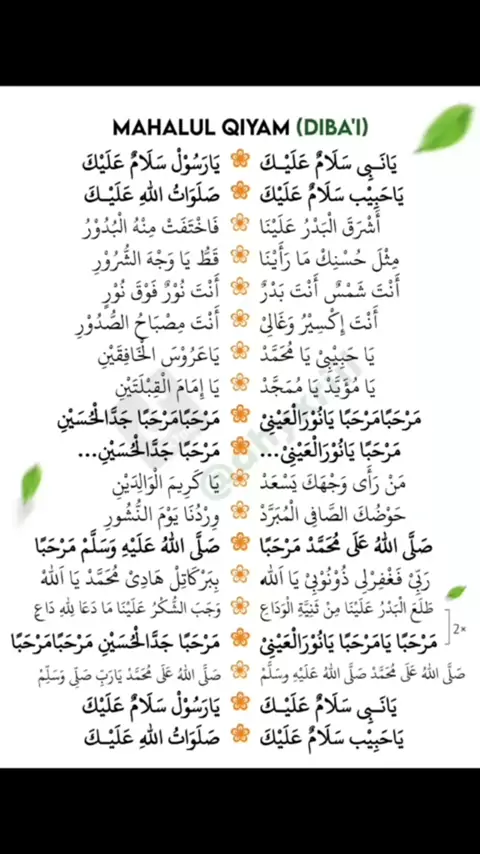 MAHALUL QIYAM (DIBA'I)
يَانَبِى سَلَامٌ عَلَيْكَ يَارَسُوْلْ سَلَامٌ عَلَيْكَ
يَاحَبِيْب سَلَامٌ عَلَيْكَ صَلَوَاتُ اللهِ عَلَيْكَ
أَشْرَقَ الْبَدْرُ عَلَيْنَا فَاخْتَفَتْ مِنْهُ الْبُدُوْرُ
مِثْلَ حُسْنِكْ مَا رَأَيْنَا قَطُّ يَا وَجْهَ السُّرُوْرِ
أَنْتَ شَمْسٌ أَنْتَ بَدْرٌ أَنْتَ نُوْرٌ فَوْقَ نُوْرٍ
أَنْتَ إِكْسِيْرُ وَغَالِىْ أَنْتَ مِصْبَاحُ الصُّدُوْرِ
يَا حَبِيْبِىْ يَا مُحَمَّدْ يَاعَرُوْسَ الْخَافِقَيْنِ
يَا مُؤَيَّدْ يَا مُمَجَّدْ يَا إِمَامَ الْقِبْلَتَيْنِ
مَرْحَبًامَرْحَبًا يَانُوْرَالْعَيْنِىْ مَرْحَبًامَرْحَبًا جَدَّالْحُسَيْنِ
مَرْحَبًا يَانُوْرَالْعَيْنِىْ... مَرْحَبًا جَدَّالْحُسَيْنِ...
مَنْ رَأَى وَجْهَكَ يَسْعَدْ يَا كَرِيمَ الْوَالِدَيْنِ
حَوْضُكَ الصَّافِى الْمُبَرَّدْ وِرْدُنَا يَوْمَ النُّشُورِ
صَلَّى اللهُ عَلَى مُحَمَّدْ مَرْحَبًا صَلَّى اللهُ عَلَيْهِ وَسَلَّمْ مَرْحَبًا
رَبِّىْ فَغْفِرْلِى ذُوْنُوْبِىْ يَا اَلله بِبَرْكَاتِلْ هَادِىْ مُحَمَّدْ يَا اَللهْ
طَلَعَ الْبَدْرُ عَلَيْنَا مِنْ ثَنِيَّةِ الْوَدَاعِ وَجَبَ الشُّكْرُ عَلَيْنَا مَا دَعَا لِلهِ دَاعِ
مَرْحَبًا يَامَرْحَبًا يَانُوْرَالْعَيْنِىْ مَرْحَبًا جَدَّالْحُسَيْنِ مَرْحَبًامَرْحَبًا 2×
صَلَّى اللهُ عَلَى مُحَمَّدْ صَلَّى اللهُ عَلَيْهِ وسَلَّمْ صَلَّى اللهُ عَلَى مُحَمَّدْ يَارَبِّ صَلِّى وَسَلِّمْ
يَانَبِى سَلَامٌ عَلَيْكَ يَارَسُوْلْ سَلَامٌ عَلَيْكَ
يَاحَبِيْب سَلَامٌ عَلَيْكَ صَلَوَاتُ اللهِ عَلَيْكَ